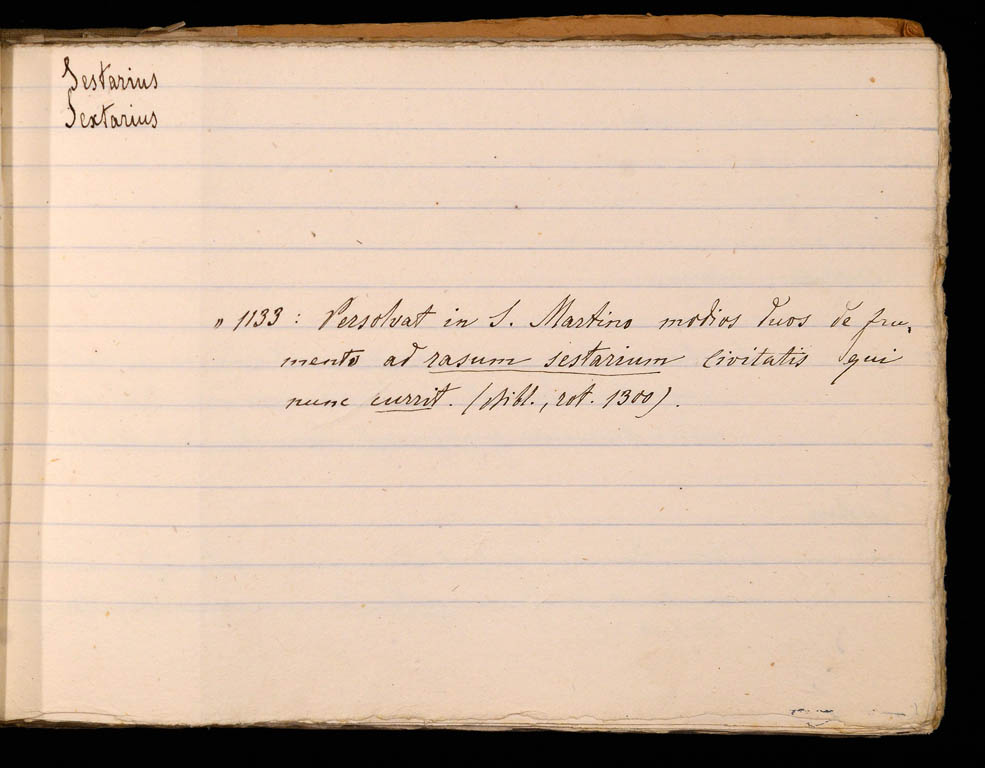 Sestarius
Sextarius
" 1133 : Persolvat in S. Martino modios duos de fru-
mento ad rasum sestarium Civitatis qui
nunc currit. (, rot. 1300).